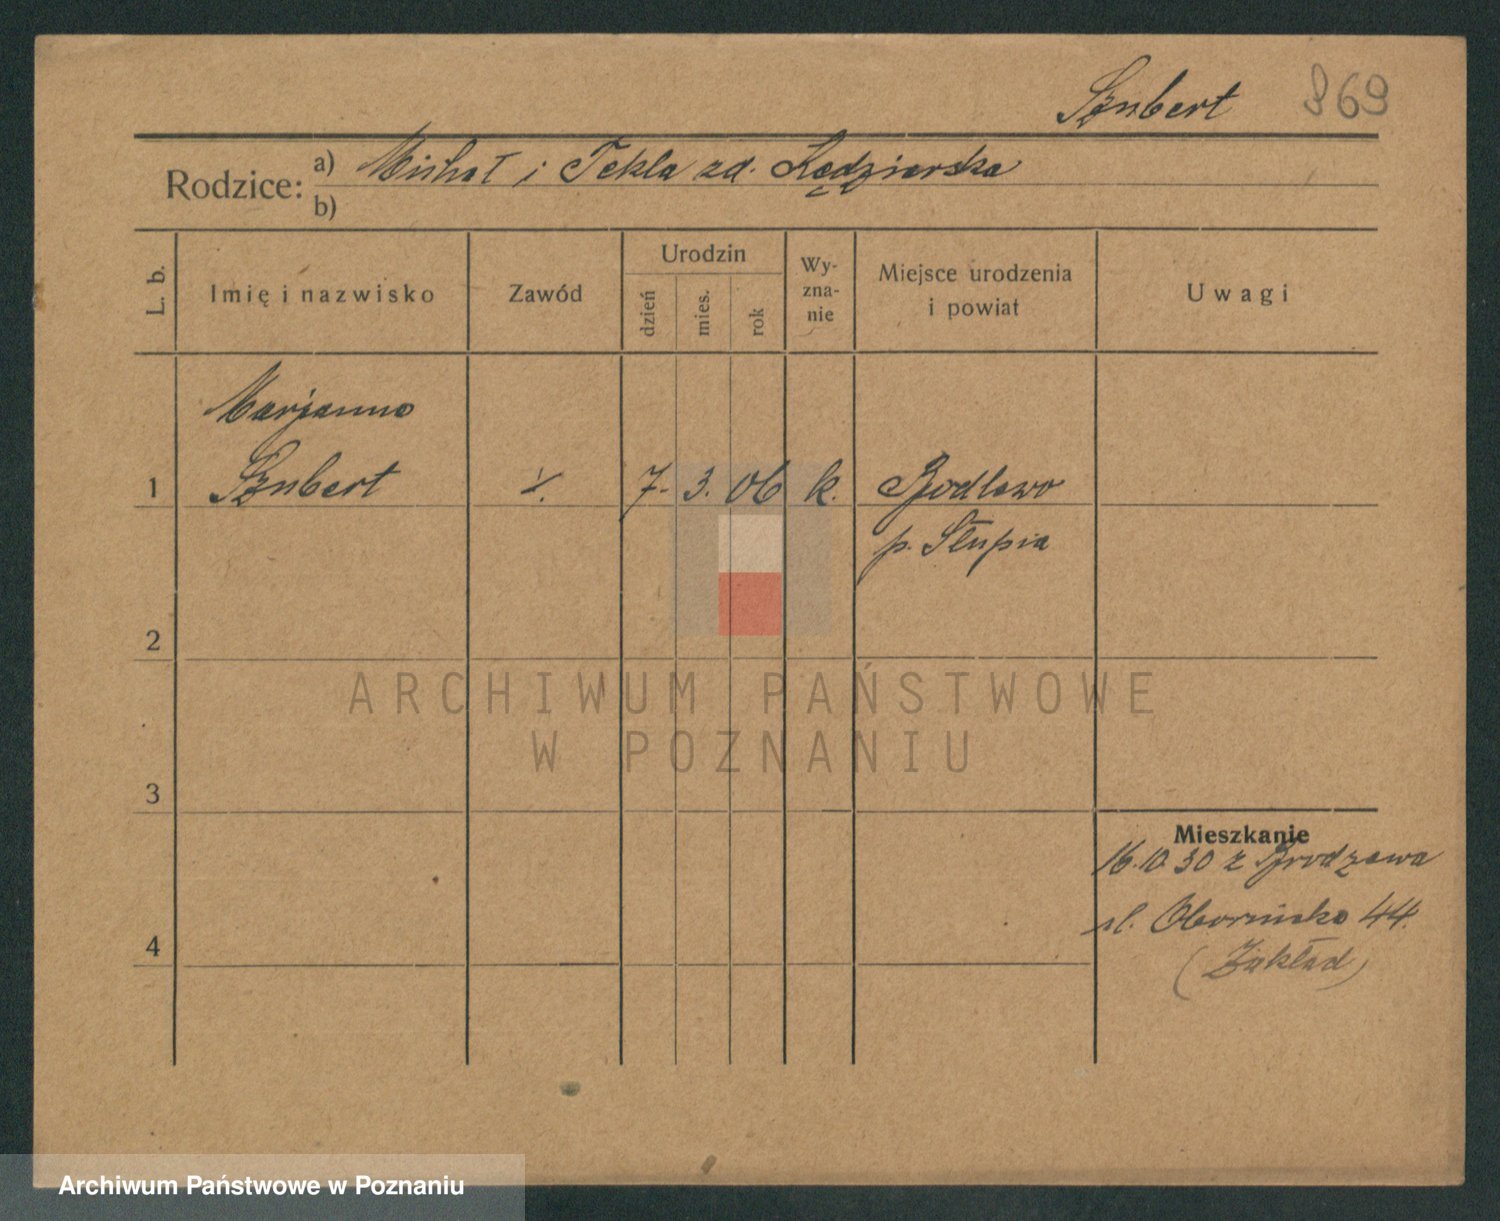 Sznbert 869
Rodzice: a) Michał i Tekla zd. Kędzierska
b)
L. b.
Imię i nazwisko
Zawód
Urodzin
dzień
mies.
rok
Wy-
zna-
nie
Miejsce urodzenia
i powiat
Uwagi
Marjanna
1 Sznbert 7. 3. 06 k.
p. Słupia
2
3
4
Mieszkanie
16.10 30 z
ul. Obornicka 44.
(Zakład)
ARCHIWUM PAŃSTWOWE
W POZNANIU
Archiwum Państwowe w Poznaniu